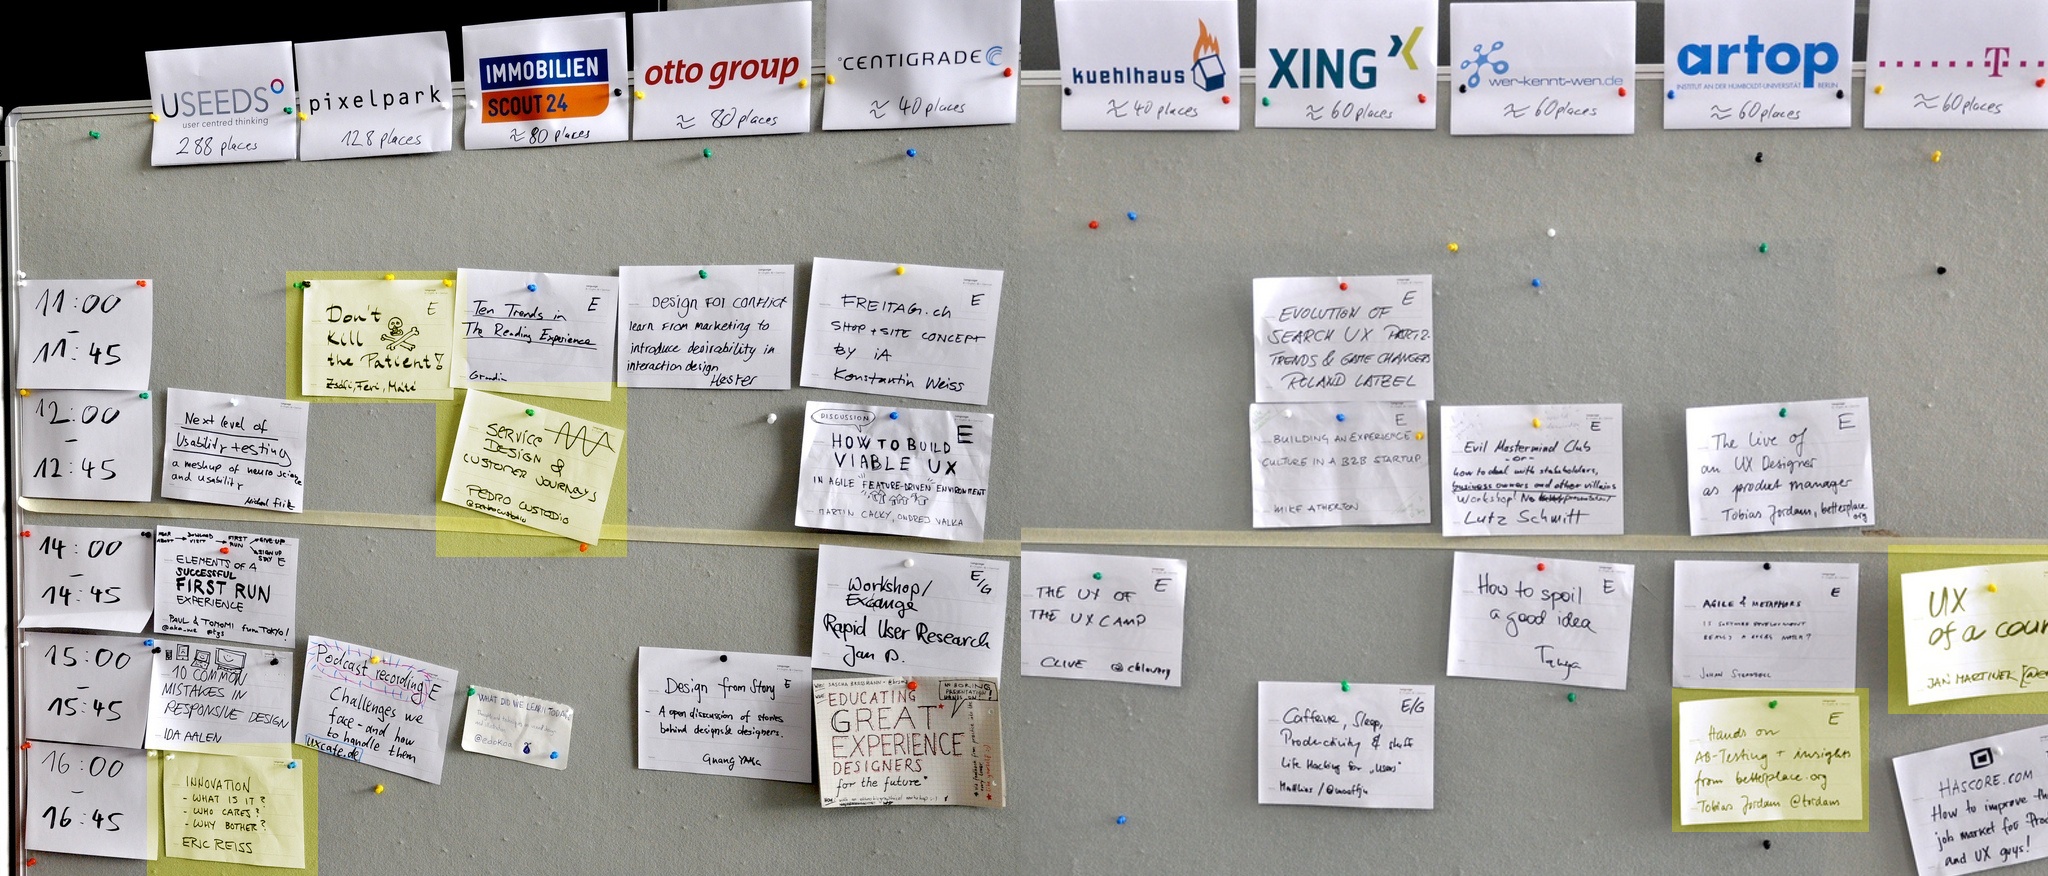 USEEDS
user centred thinking
288 places
pixelpark
128 places
IMMOBILIEN
SCOUT 24
≈ 80 places
otto group
≈ 80 places
CENTIGRADE
≈ 40 places
kuehlhaus
≈ 40 places
XING
≈ 60 places
wer-kennt-wen.de
≈ 60 places
artop
INSTITUT AN DER HUMBOLDT-UNIVERSITÄT BERLIN
≈ 60 places
T
≈ 60 places
11:00
–
11:45
Don't
Kill
the Patient!
Zsófi, Feri, Máté
E
Ten Trends in
The Reading Experience
E
Design FOR CONFLICT
learn from marketing to
introduce desirability in
interaction design
Hester
FREITAG.ch
SHOP + SITE CONCEPT
by iA
Konstantin Weiss
E
EVOLUTION OF
SEARCH UX PART 2.
TRENDS & GAME CHANGERS
ROLAND LATZEL
E
12:00
–
12:45
Next level of
Usability testing
a meshup of neuro science
and usability
Michael Fritz
SERVICE
DESIGN &
CUSTOMER JOURNEYS
PEDRO CUSTÓDIO
DISCUSSION
E
HOW TO BUILD
VIABLE UX
IN AGILE "FEATURE-DRIVEN" ENVIRONMENT
MARTIN CALKY, ONDREJ VALKA
E
BUILDING AN EXPERIENCE
CULTURE IN A B2B STARTUP
MIKE ATHERTON
E
Evil Mastermind Club
- or -
how to deal with stakeholders,
business owners and other villains
Workshop! No
Lutz Schmitt
E
The live of
an UX Designer
as product manager
Tobias Jordans, betterplace
.org
14:00
–
14:45
FIRST RUN
GIVE UP
SIGN UP
STAY E
ELEMENTS OF A
SUCCESSFUL
FIRST RUN
EXPERIENCE
PAUL & TOMOMI from TOKYO!
E/G
Workshop/
Exchange
Rapid User Research
Jan D.
E
THE UX OF
THE UXCAMP
CLIVE
E
How to spoil
a good idea
Tanya
E
AGILE & METAPHORS
IS SOFTWARE DEVELOPMENT
REALLY A
UX
of a
JAN MARTINEK
15:00
–
15:45
10 COMMON
MISTAKES IN
RESPONSIVE DESIGN
IDA AALEN
Podcast recording E
Challenges we
face - and how
to handle them
uxcafe.de
WHAT DID WE LEARN TODAY
@edokoa
Design from Story E
- A open discussion of stories
behind designs & designers.
Guang Yang
EDUCATING
GREAT
EXPERIENCE
DESIGNERS
for the future*
E/G
Caffeine, Sleep,
Productivity & stuff
Life Hacking for "Users"
E
Hands on
AB-Testing + insights
from betterplace.org
Tobias Jordans @tordans
HASCORE.COM
How to improve the
job market for
and UX guys!
16:00
–
16:45
INNOVATION
- WHAT IS IT?
- WHO CARES?
- WHY BOTHER?
ERIC REISS